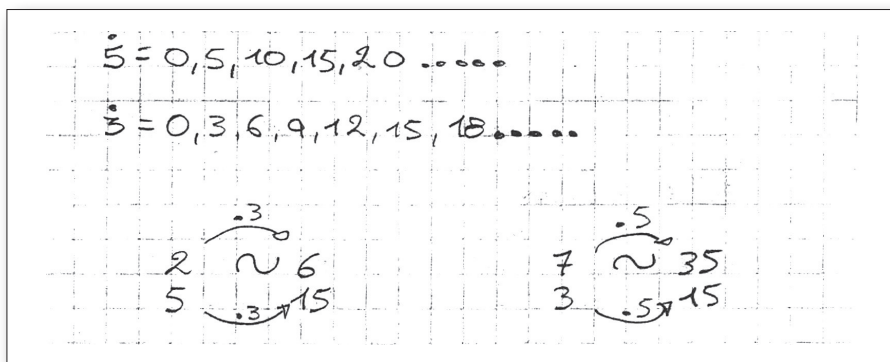 5̇ = 0, 5, 10, 15, 20 .....
3̇ = 0, 3, 6, 9, 12, 15, 18 .....
.3 .5
2 ~ 6 7 ~ 35
5 15 3 15
.3 .5